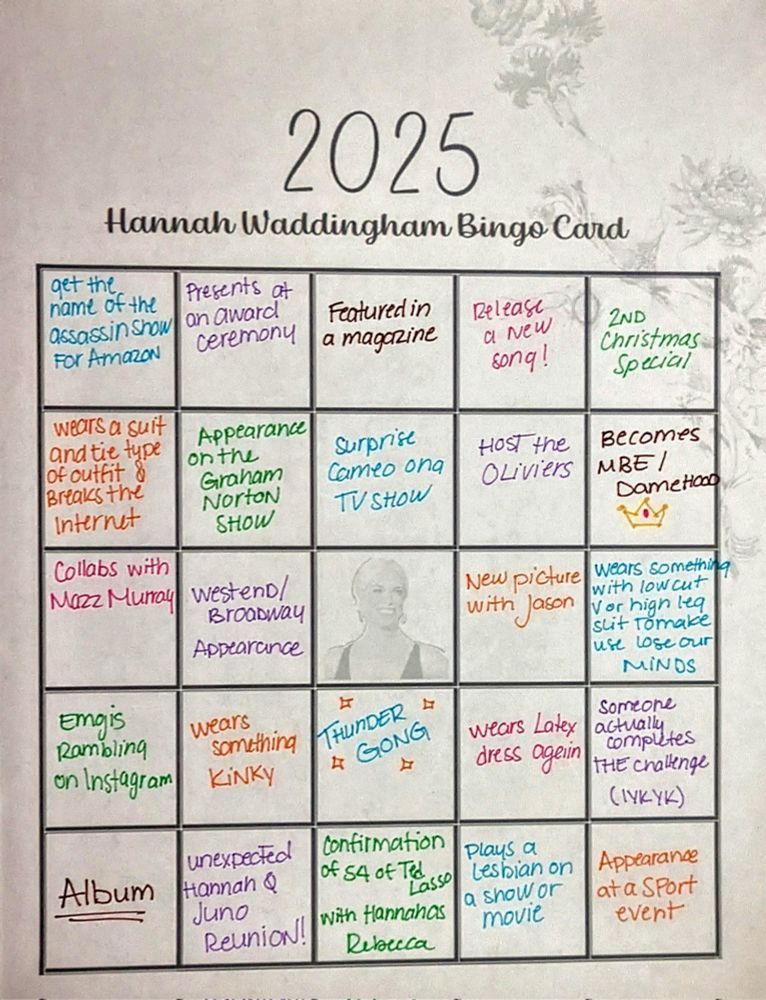 2025
Hannah Waddingham Bingo Card
get the
name of the
assassin show
For Amazon
Presents at
an award
ceremony
Featured in
a magazine
Release
a new
song!
2ND
Christmas
Special
wears a suit
and tie type
of outfit &
Breaks the
Internet
Appearance
on the
Graham
Norton
SHOW
Surprise
Cameo on a
TV SHOW
HOST the
OLiviers
Becomes
MBE /
DameHood
Collabs with
Mazz Murray
Westend/
BROADWAY
Appearance
New picture
with Jason
Wears something
with low cut
V or high leg
slit To make
use lose our
MiNDS
Emgis
Rambling
on Instagram
wears
something
KiNKY
THUNDER
GONG
wears Latex
dress ageiin
Someone
actually
completes
THE challenge
(IYKYK)
Album
unexpected
Hannah &
Juno
Reunion!
Confirmation
of S4 of Ted
Lasso
with Hannah as
Rebecca
Plays a
Lesbian on
a show or
movie
Appearance
at a SPort
event